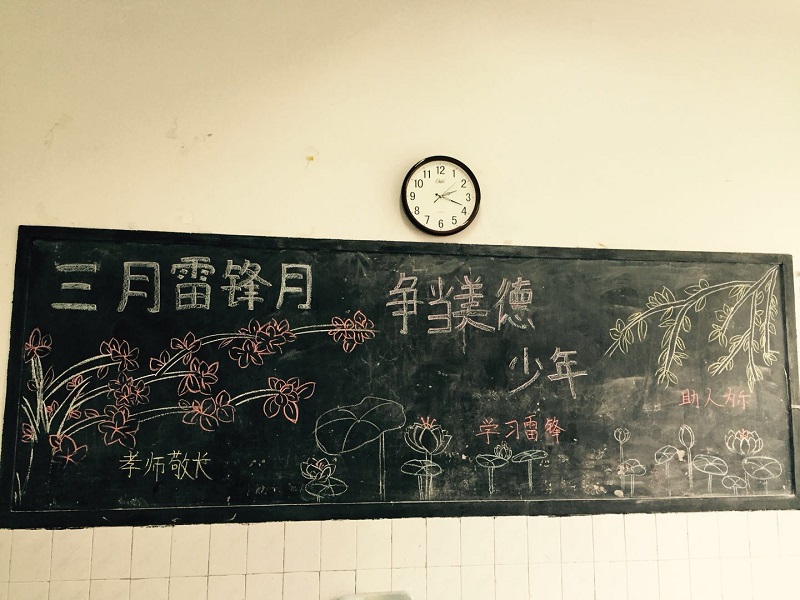 12
1
2
3
4
5
6
7
8
9
10
11
三月雷锋月
争当美德
少年
助人为乐
学习雷锋
孝师敬长